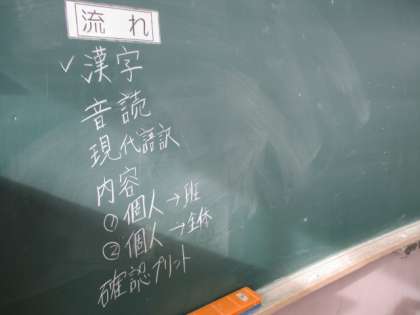 流れ
✓漢字
音読
現代語訳
内容
①個人→班
②個人→全体
確認プリント